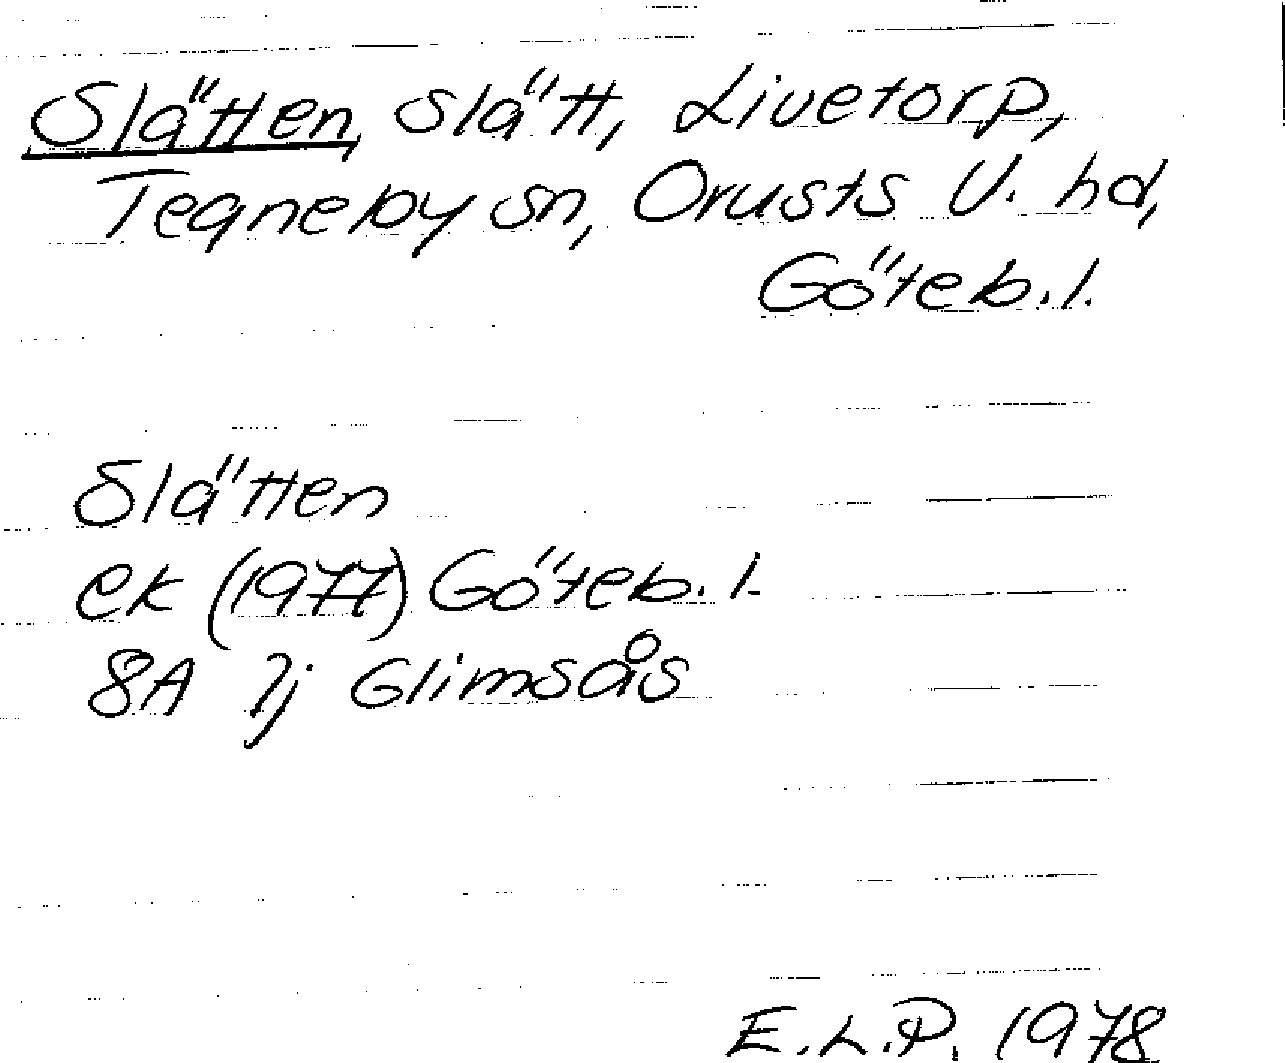 Slätten, slätt, Livetorp,
Tegneby sn, Orusts V. hd,
Göteb. l.
Slätten
ek (1977) Göteb. l.
8A 7j Glimsås
E.L.P. 1978